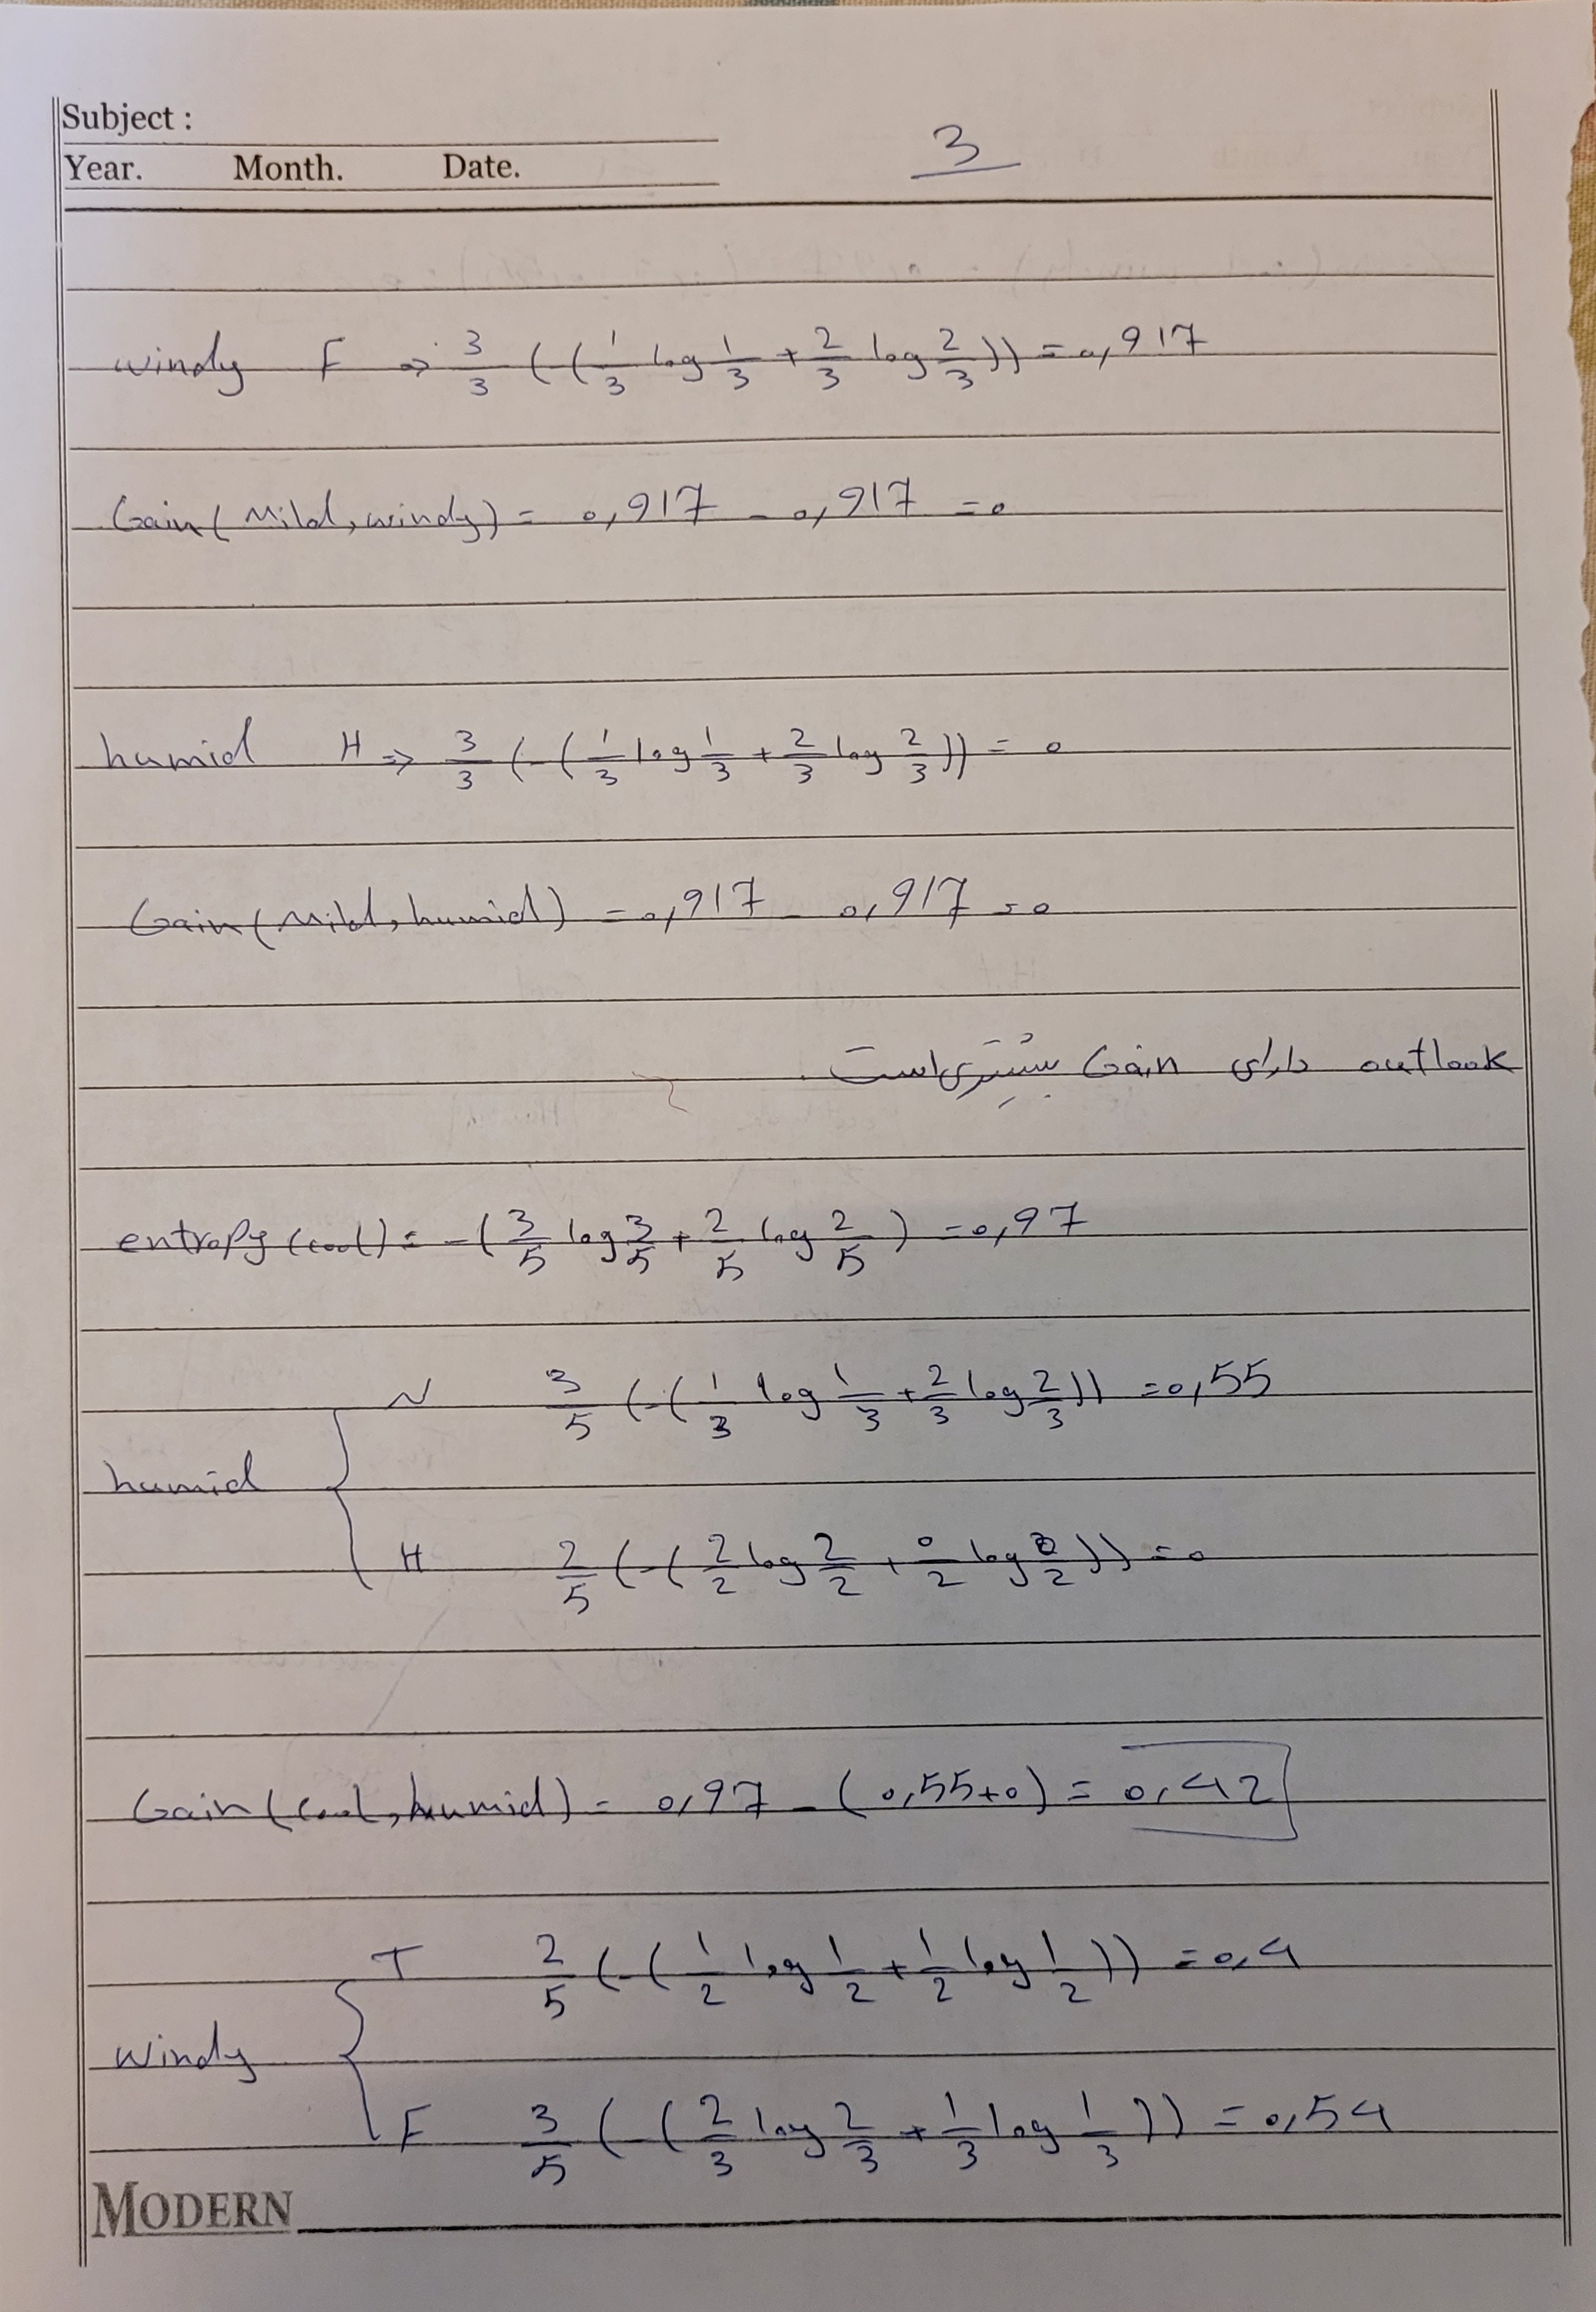 Subject :
Year. Month. Date.
3
windy F ⇒ 3/3 ((1/3 log 1/3 + 2/3 log 2/3)) = 0,917
Gain(Mild,windy) = 0,917 - 0,917 = 0
humid H ⇒ 3/3 (-(1/3 log 1/3 + 2/3 log 2/3)) = 0
Gain(Mild,humid) = 0,917 - 0,917 = 0
outlook دارای Gain بیشتری است.
entropy(cool) = -(3/5 log 3/5 + 2/5 log 2/5) = 0,97
N 3/5 (-(1/3 log 1/3 + 2/3 log 2/3)) = 0,55
humid
H 2/5 (-(2/2 log 2/2 + 0/2 log 0/2)) = 0
Gain(cool,humid) = 0,97 - (0,55+0) = 0,42
T 2/5 (-(1/2 log 1/2 + 1/2 log 1/2)) = 0,4
windy
F 3/5 (-(2/3 log 2/3 + 1/3 log 1/3)) = 0,54
MODERN